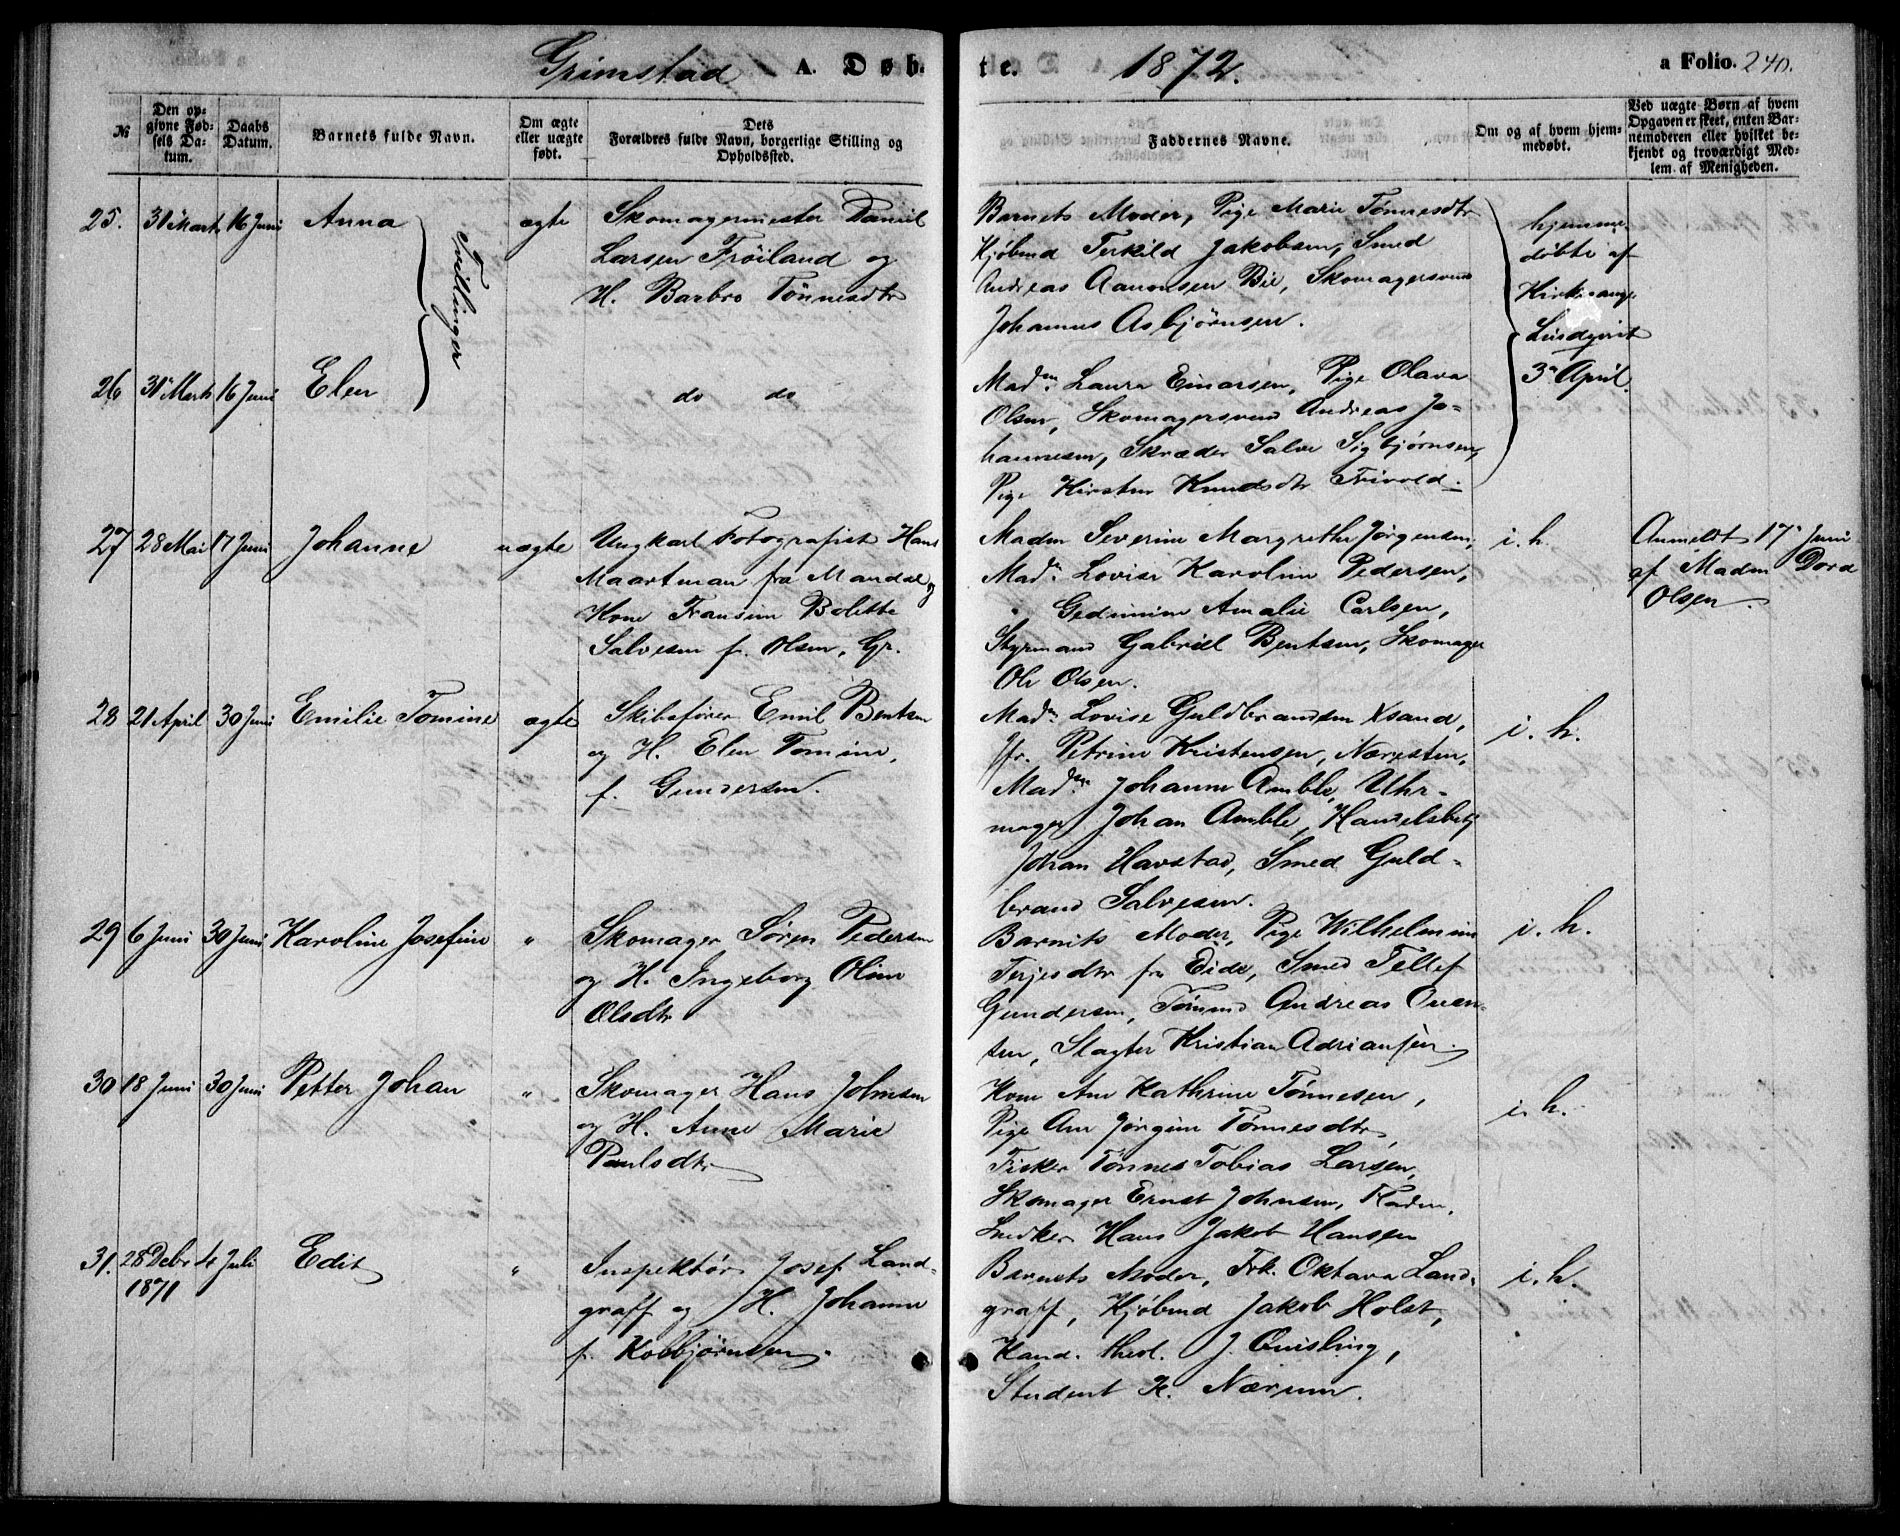 Grimstad A. Døb-
te. 1872. a Folio. 240.
№
Den op-
givne Fød-
sels Da-
tum.
Daabs
Datum.
Barnets fulde Navn.
Om ægte
eller uægte
født.
Dets
Forældres fulde Navn, borgerlige Stilling og
Opholdssted.
Faddernes Navne.
Om og af hvem hjem-
medøbt.
Ved uægte Børn af hvem
Opgaven er skeet, enten Bar-
nemoderen eller hvilket be-
kjendt og troværdigt Med-
lem af Menigheden.
25. 31 Mart 16 Juni Anna ægte
Tvillinger
Skomagermester Daniel
Larsen Frøiland og
H. Barbro Tønnesdtr
Barnets Moder, Pige Marie Tønnesdtr
Kjøbmd Terkild Jakobsen, Smed
Andreas Aanonsen Bie, Skomagersvend
Johannes Asbjørnsen.
hjemme-
døbte af
Kirkesanger
Lindqvist
3 April.
26 31 Mart 16 Juni Elen do do
Madm. Laura Einarsen, Pige Olava
Olsen, Skomagersvend Andreas Jo-
hannesen, Skræder Salve Sigbjørnsen,
Pige Kirsten Knudsdtr Frivold.
27 28 Mai 17 Juni Johanne uægte
Ungkarl Fotografist Hans
Maartman fra Mandal og
Kone Fransine Bolette
Salvesen f. Olsen, Gr.
Madm Severine Margrethe Jørgensen,
Madm. Lovise Karoline Pedersen,
" Gedimine Amalie Carlsen,
Styrmand Gabriel Bentsen, Skomager
Ole Olsen.
i. h.
Anmeldt 17 Juni
af Madm Dord
Olsen.
28 21 April 30 Juni Emilie Tomine ægte
Skibsfører Emil Bentsen
og H. Elen Tomine,
f. Gundersen.
Madm. Lovise Guldbrandsen Xsand,
Jfr. Petrine Kristensen, Næresten,
Madm. Johanne Amble, Uhr-
mager Johan Amble, Handelsbetj
Johan Havstad, Smed Guld-
brand Salvesen.
i. h.
29 6 Juni 30 Juni Karoline Josefine "
Skomager Søren Pedersen
og H. Ingeborg Oline
Olsdtr
Barnets Moder, Pige Wilhelmine
Terjesdtr fra Eide, Smed Tellef
Gundersen, Tømmd Andreas Oven-
sen, Slagter Kristian Adriansen.
i. h.
30 18 Juni 30 Juni Petter Johan "
Skomager Hans Johnsen
og H. Anne Marie
Paulsdtr
Kone Ane Kathrine Tønnesen,
Pige Ane Jørgine Tønnesdtr,
Fisker Tønnes Tobias Larsen,
Skomager Ernst Johnsen,
Snedker Hans Jakob Hansen
i. h.
31. 28 Debr 4 Juli Edit "
1871
Inspektør Josef Land-
graff og H. Johanne
f. Kolbjørnsen.
Barnets Moder, Frk. Oktava Land-
graff, Kjøbmd Jakob Holst,
Kand. theol. J. Qvisling,
Student K. Nærum.
i. h.